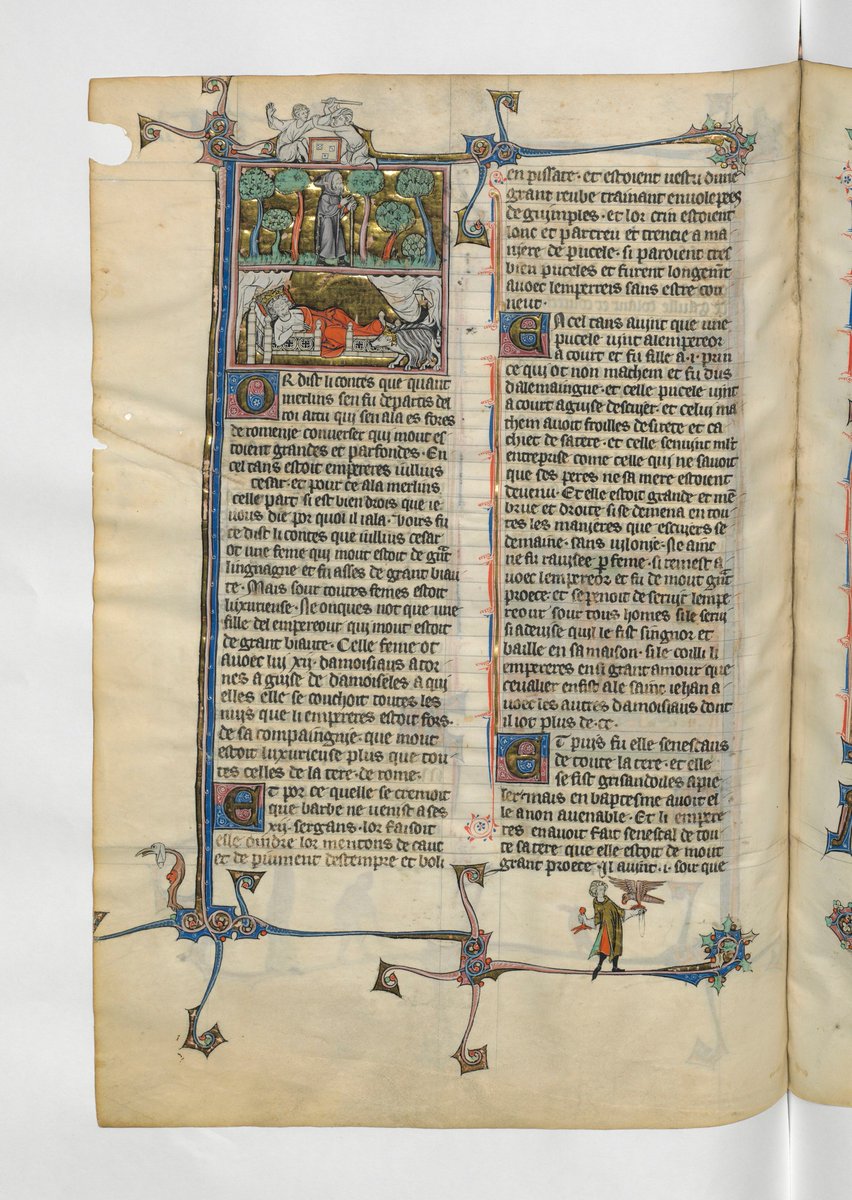 OR dist li contes que quant
merlins sen fu departis del
roi artu qui sen ala es fores
de romenie converser qui mout es
toient grandes et parfondes · En
cel tans estoit empereres iullius
cesar · et pour ce ala merlins
celle part si est bien drois que ie
vous die por quoi il iala · Voirs fu
ce dist li contes que iullius cesar
ot une feme qui mout estoit de gnt
lingnagne et fu asses de grant biau
te · Mais sour toutes femes estoit
luxurieuse · Ne onques not que une
fille del empereour qui mout estoit
de grant biaute · Celle feme ot
avoec lui xij · damoisiaus ator
nes a guise de damoiseles a qui
elles elle se couchoit toutes les
nuis que li empereres estoit fors ·
de sa compaingnie · que mout
estoit luxurieuse plus que tou
tes celles de la tere · de rome ·
Et por ce quelle se cremoit
que barbe ne venist a ses
xij · sergans · lor faisoit
elle oindre lor mentons de cauc
et de piument destempre et boli
en pissate · et estoient vestu dune
grant reube trainant envolepees
de guimples · et lor crin estoient
lonc et partreu et trencie a ma
niere de pucele · si paroient tres
bien puceles et furent longemt
avoec lemperreis sans estre con
neut ·
En cel tans avint que une
pucele vint alempereor
a court et fu fille a · i · prin
ce qui ot non machem et fu dus
dalemaingne · et celle pucele vint
a court a guise descuier · et celui ma
them avoit froilles desirete et ca
chiet de sa tere · et celle se vint mlt
entreprise come celle qui ne savoit
que ses peres ne sa mere estoient
devenu · Et elle estoit grande et me
brue et droite si se demena en tou
tes les manieres que escuiers se
demaine · sans vilonie · Ne ainc
ne fu ravisee p feme · si remest a
voec lempereor et fu de mout gnt
proece · et se penoit de servir lempe
reour sour tous homes si le servi
si adevise quil le fist singnor et
baille en sa maison · si le coilli li
empereres en si grant amour que
cevalier en fist a le saint iehan a
voec les autres damoisiaus dont
il iot plus de · cc ·
Et puis fu elle senescaus
de toute la tere · et elle
se fist grisandoles apie
ler · mais en baptesme avoit el
le a non avenable · Et li empere
res en avoit fait senescal de tou
te sa tere que elle estoit de mout
grant proece · Il avint · i · soir que